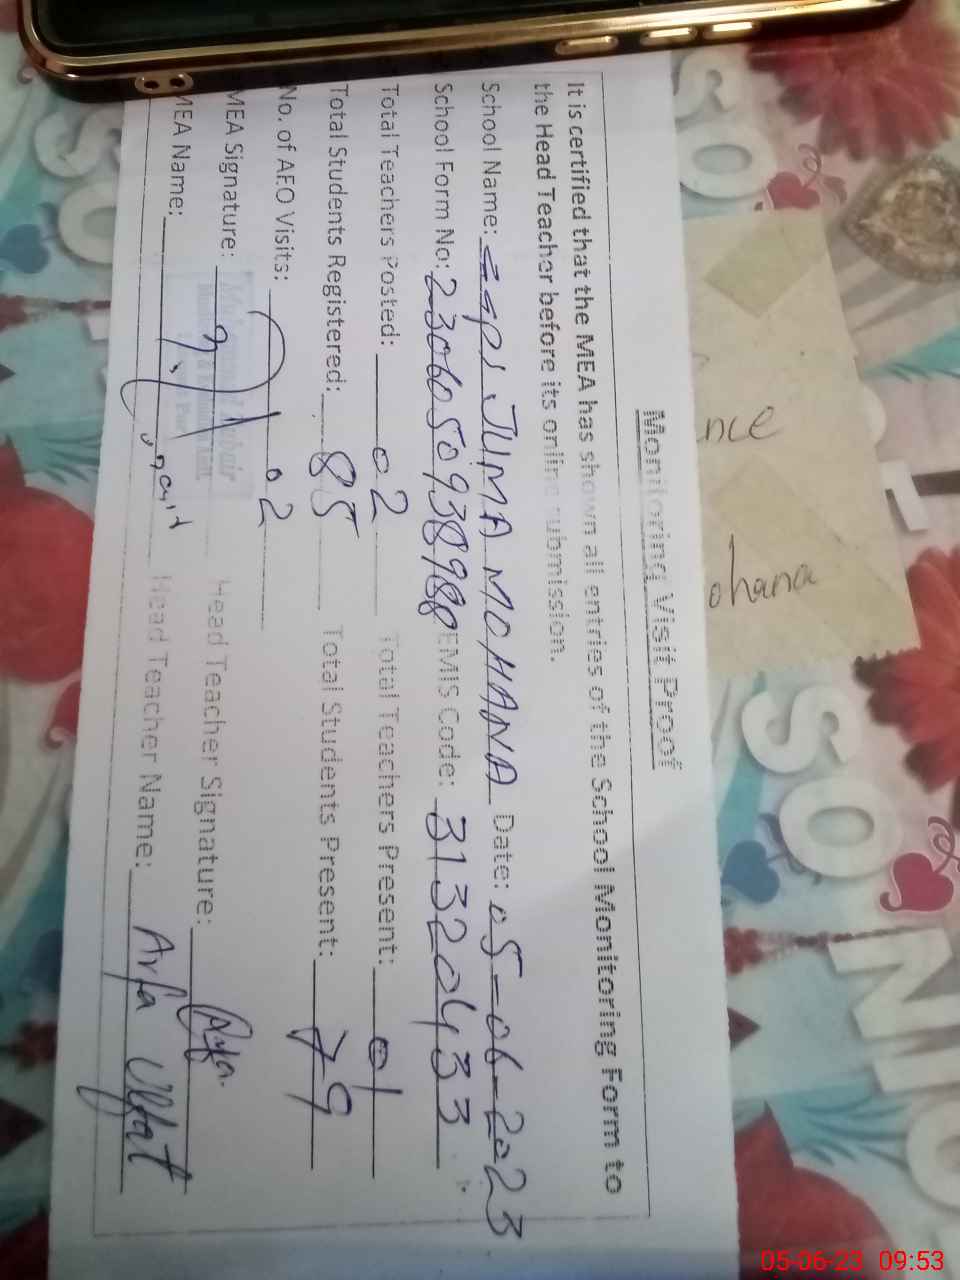 Monitoring Visit Proof
It is certified that the MEA has shown all entries of the School Monitoring Form to
the Head Teacher before its online submission.
School Name: GGPS JUMA MOHANA Date: 05-06-2023
School Form No: 2306050938988 EMIS Code: 31320433
Total Teachers Posted: 02 Total Teachers Present: 01
Total Students Registered: 85 Total Students Present: 79
No. of AEO Visits: 02
MEA Signature: Head Teacher Signature: Arfa
MEA Name: Head Teacher Name: Arfa Ulfat
nce
ohana
SO
SO
05-06-23 09:53